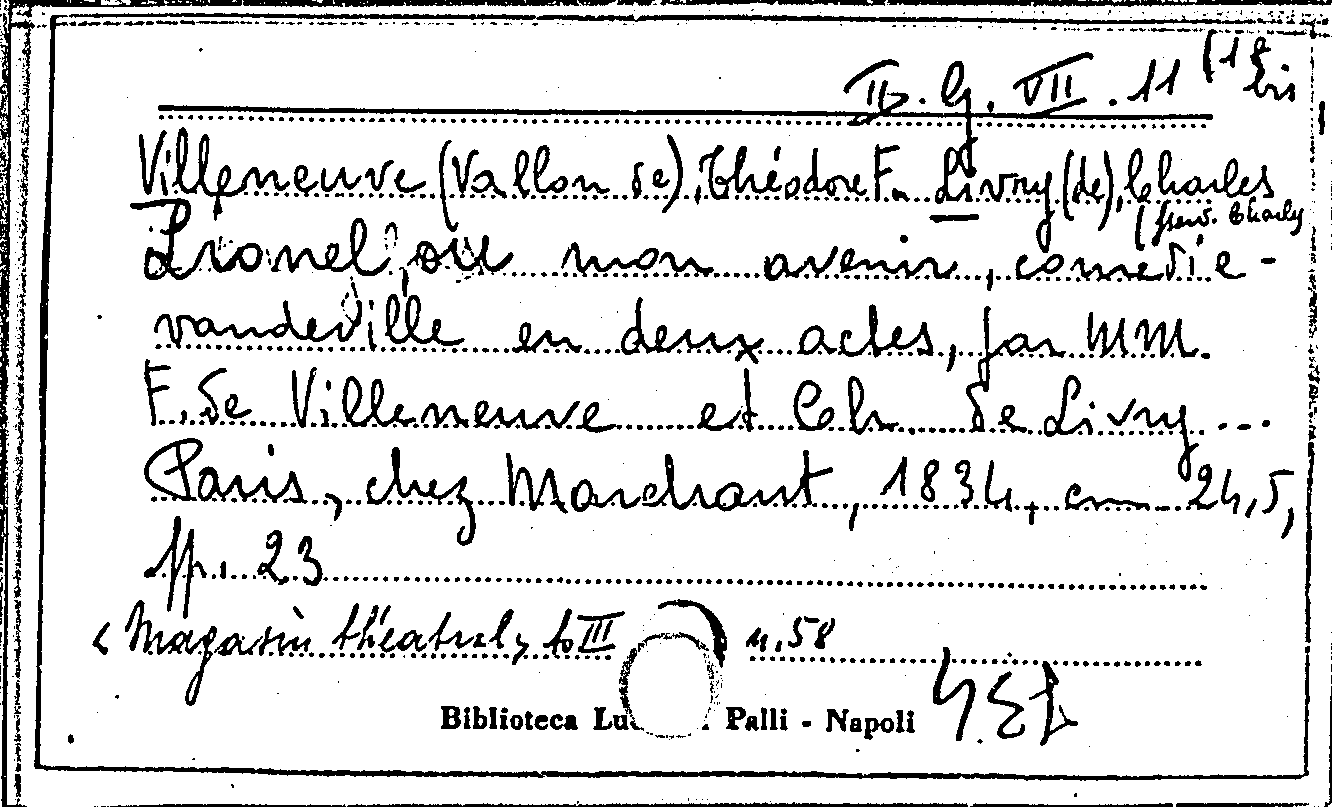 II. G. VII. 11 (18 bis
Villeneuve (Vallon de), Théodore F. Livry (de), Charles
(pseud. Charly
Lionel, ou mon avenir, comédie-
vaudeville en deux actes, par MM.
F. de Villeneuve et Ch. de Livry...
Paris, chez Marchant, 1834, cm 24,5,
pp. 23
< Magasin théatral, to III n. 58
Biblioteca Palli - Napoli